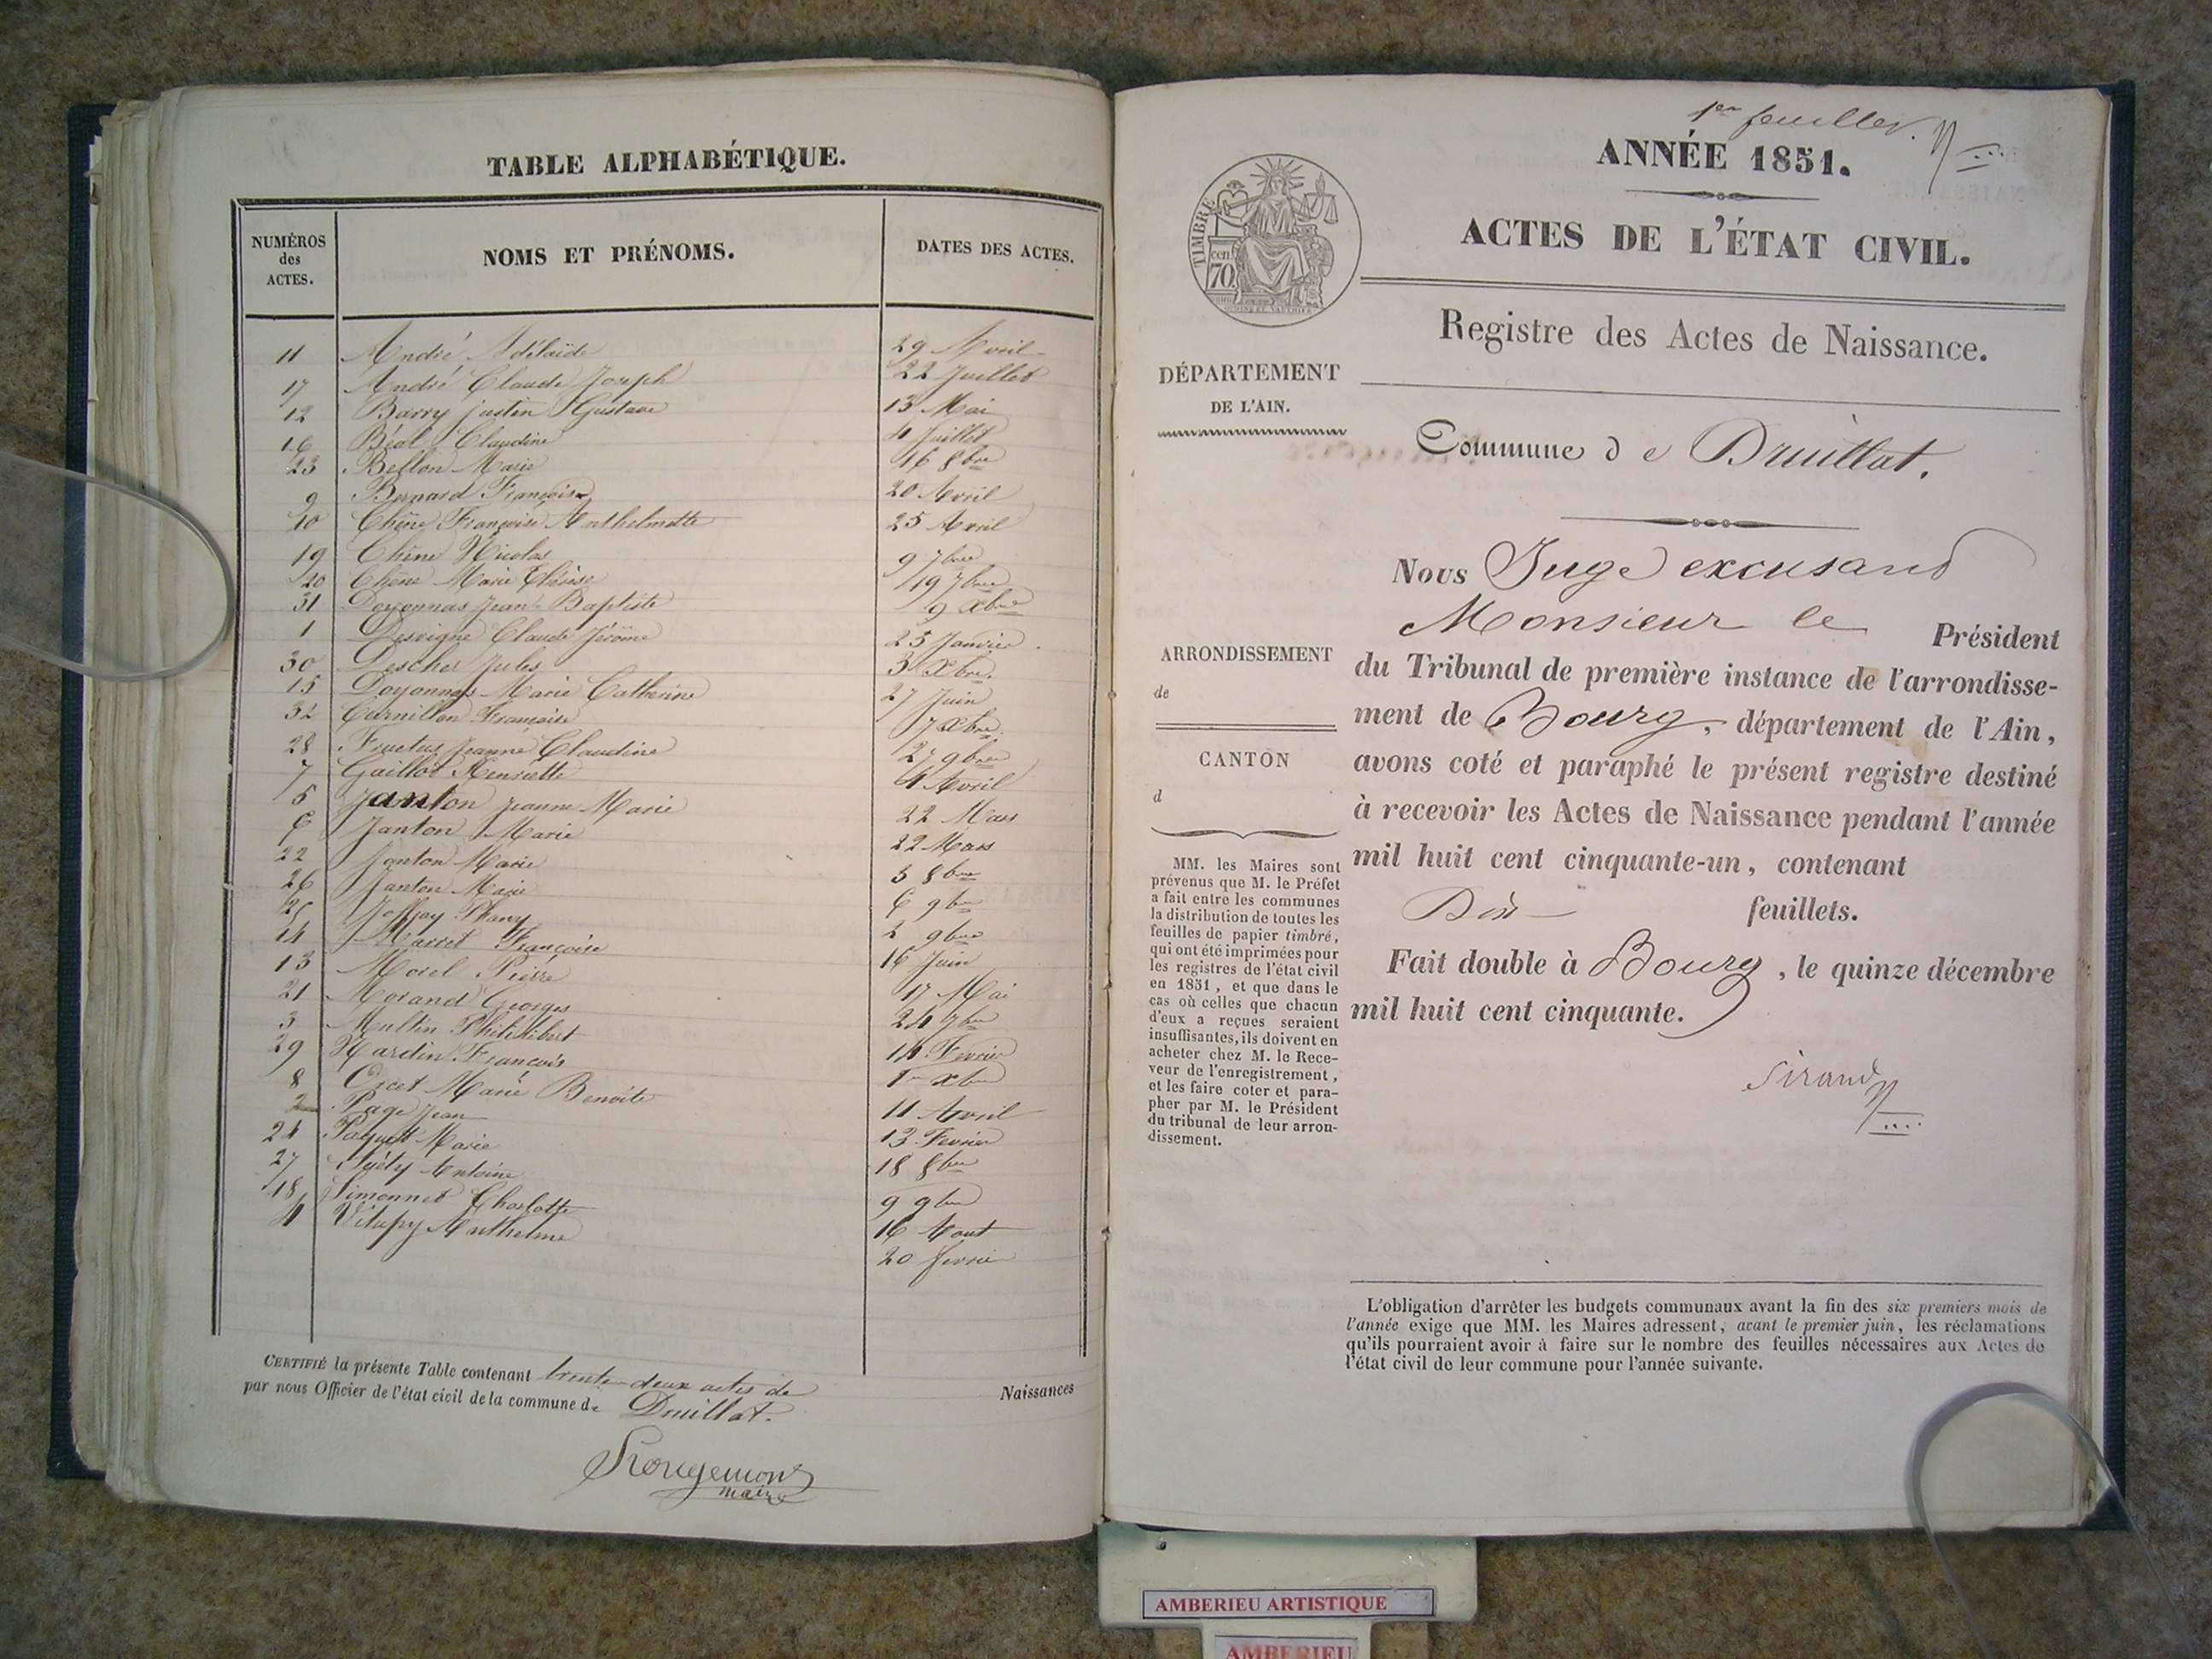 TABLE ALPHABÉTIQUE.
NUMÉROS des ACTES. NOMS ET PRÉNOMS. DATES DES ACTES.
11 André Adélaïde 29 Avril
17 André Claude Joseph 22 Juillet
12 Barry justin Gustave 13 Mai
16 Béal Claudine 4 Juillet
23 Bellon Marie 16 8bre
9 Bernard Françoise 20 Avril
10 Chêne Françoise Anthelmette 25 Avril
19 Chêne Nicolas 9 7bre
20 Chêne Marie Thérèse 19 7bre
31 Doyonnas Jean Baptiste 9 Xbre
1 Desvigne Claude Jérôme 25 Janvier
30 Descher Jules 3 Xbre.
15 Doyonnas Marie Catherine 27 Juin
32 Curnillon Françoise 17 Xbre
28 Fructus Jeanne Claudine 27 9bre
7 Gaillot Henriette 4 Avril
5 Janton Jeanne Marie 22 Mars
6 Janton Marie 22 Mars
22 Janton Marie 5 8bre
26 Janton Marie 6 9bre
25 Joffray Phany 2 9bre
14 Marret Françoise 16 Juin
13 Morel Pierre 17 Mai
21 Morand Georges 24 7bre
3 Multin Philibert 14 Fevrier
29 Nardin François 1er Xbre
8 Orcet Marie Benoite 11 Avril
2 Page Jean 13 Fevrier
24 Paquet Marie 18 8bre
27 Antoine 9 9bre
18 Simonnet Charlotte 16 Aout
4 Vitupy Anthelme 20 fevrier
CERTIFIÉ la présente Table contenant trente-deux actes de Naissances
par nous Officier de l'état civil de la commune de Druillat.
Rougemont
maire
1er feuillet.
ANNÉE 1851.
ACTES DE L'ÉTAT CIVIL.
TIMBRE
70 cen
Registre des Actes de Naissance.
DÉPARTEMENT
DE L'AIN.
Commune de Druillat.
ARRONDISSEMENT
de
CANTON
d
MM. les Maires sont
prévenus que M. le Préfet
a fait entre les communes
la distribution de toutes les
feuilles de papier timbré,
qui ont été imprimées pour
les registres de l'état civil
en 1851, et que dans le
cas où celles que chacun
d'eux a reçues seraient
insuffisantes, ils doivent en
acheter chez M. le Rece-
veur de l'enregistrement,
et les faire coter et para-
pher par M. le Président
du tribunal de leur arron-
dissement.
Nous Juge excusant
Monsieur le Président
du Tribunal de première instance de l'arrondisse-
ment de Bourg, département de l'Ain,
avons coté et paraphé le présent registre destiné
à recevoir les Actes de Naissance pendant l'année
mil huit cent cinquante-un, contenant
Dix feuillets.
Fait double à Bourg, le quinze décembre
mil huit cent cinquante.
Sirand
L'obligation d'arrêter les budgets communaux avant la fin des six premiers mois de
l'année exige que MM. les Maires adressent, avant le premier juin, les réclamations
qu'ils pourraient avoir à faire sur le nombre des feuilles nécessaires aux Actes de
l'état civil de leur commune pour l'année suivante.
AMBERIEU ARTISTIQUE
AMBERIEU